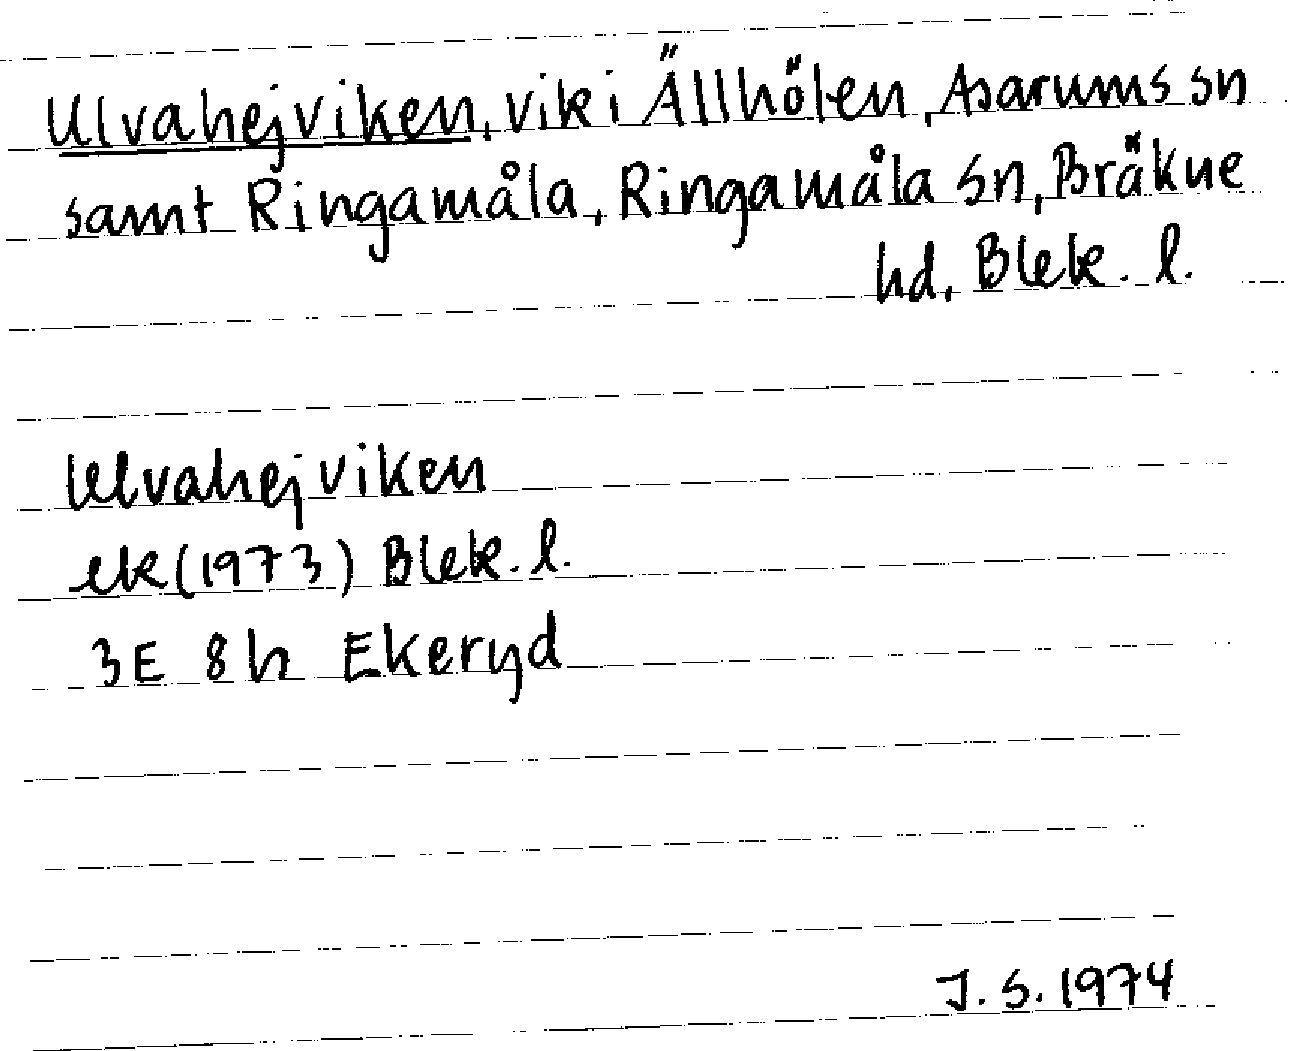 Ulvahejviken, vik i Ällhölen, Asarums sn
samt Ringamåla, Ringamåla sn, Bräkne
hd, Blek. l.
Ulvahejviken
ek (1973) Blek. l.
3E 8h Ekeryd
J. S. 1974